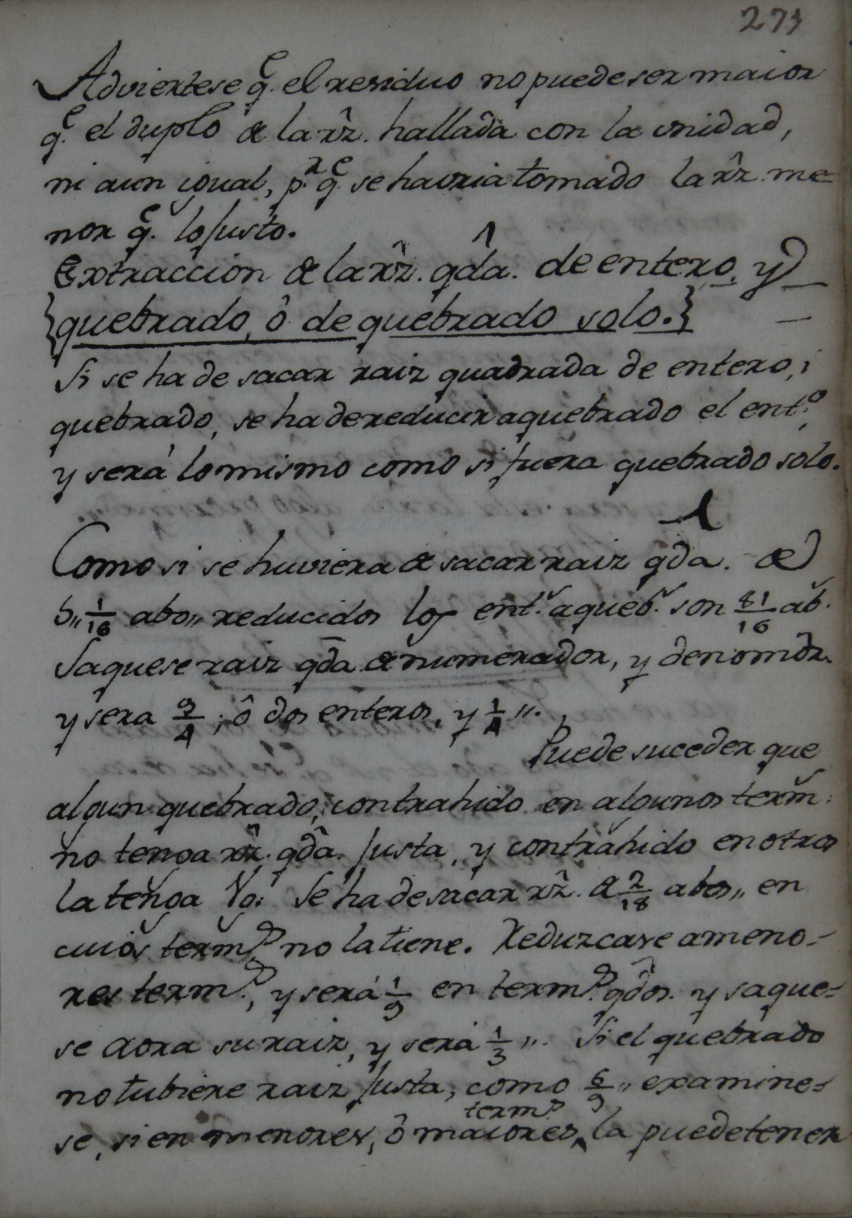 273
Adviertese q.e el residuo no puede ser maior
q.e el duplo de la rz̃. hallada con la unidad,
ni aun igual, p.r q.e se havria tomado la rz̃. me-
nor q.e lo justo.
Extraccion de la rz̃. qda. de entero, y
{quebrado, ô de quebrado solo.}
Si se ha de sacar raiz quadrada de entero, i
quebrado, se ha de reducir a quebrado el ent.o,
y será lo mismo como si fuera quebrado solo.
1
Como si se huviera de sacar raiz qda. de
5,, 1/16 abo,, reducidos los ent.s a queb.s son 81/16 ab.s
Saquese raiz qda de numerador, y denomdr.
y sera 9/4; ô dos enteros, y 1/4 ,,.
Puede suceder que
algun quebrado, contrahido en algunos term̃.
no tenga rz̃. qda. justa, y contrahido en otros
la tenga Vg. Se ha de sacar rz̃. de 2/18 abos,, en
cuios term.os no la tiene. Reduzcase a meno-
res term.os, y será 1/9 en term.os qdos. y saque-
se aora su raiz, y será 1/3 ,,. Si el quebrado
no tubiere raiz justa, como 6/9 ,, examine-
se, si en menores, ô maiores term.os la puede tener